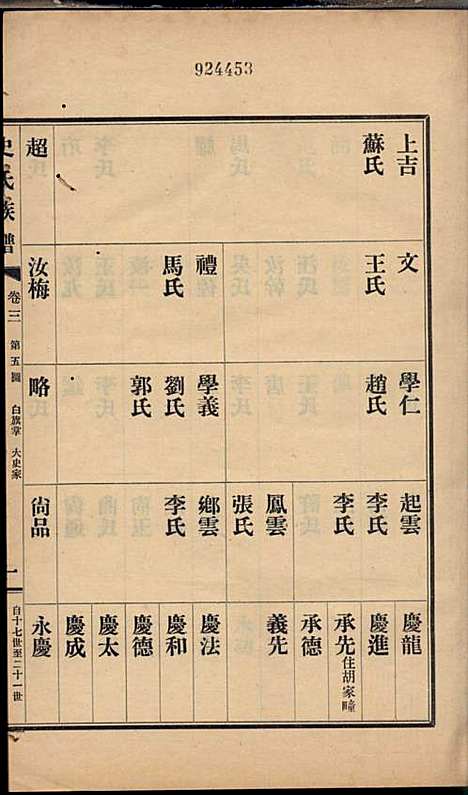 924453
上吉
蘇氏
超
文
王氏
禮
馬氏
汝梅
學仁
趙氏
學義
劉氏
郭氏
略
起雲
李氏
李氏
鳳雲
張氏
鄉雲
李氏
尙品
慶龍
慶進
承先住胡家疃
承德
義先
慶法
慶和
慶德
慶太
慶成
永慶
史氏族譜
卷三
第五圖
白旗掌
大史家
一
自十七世至二十一世